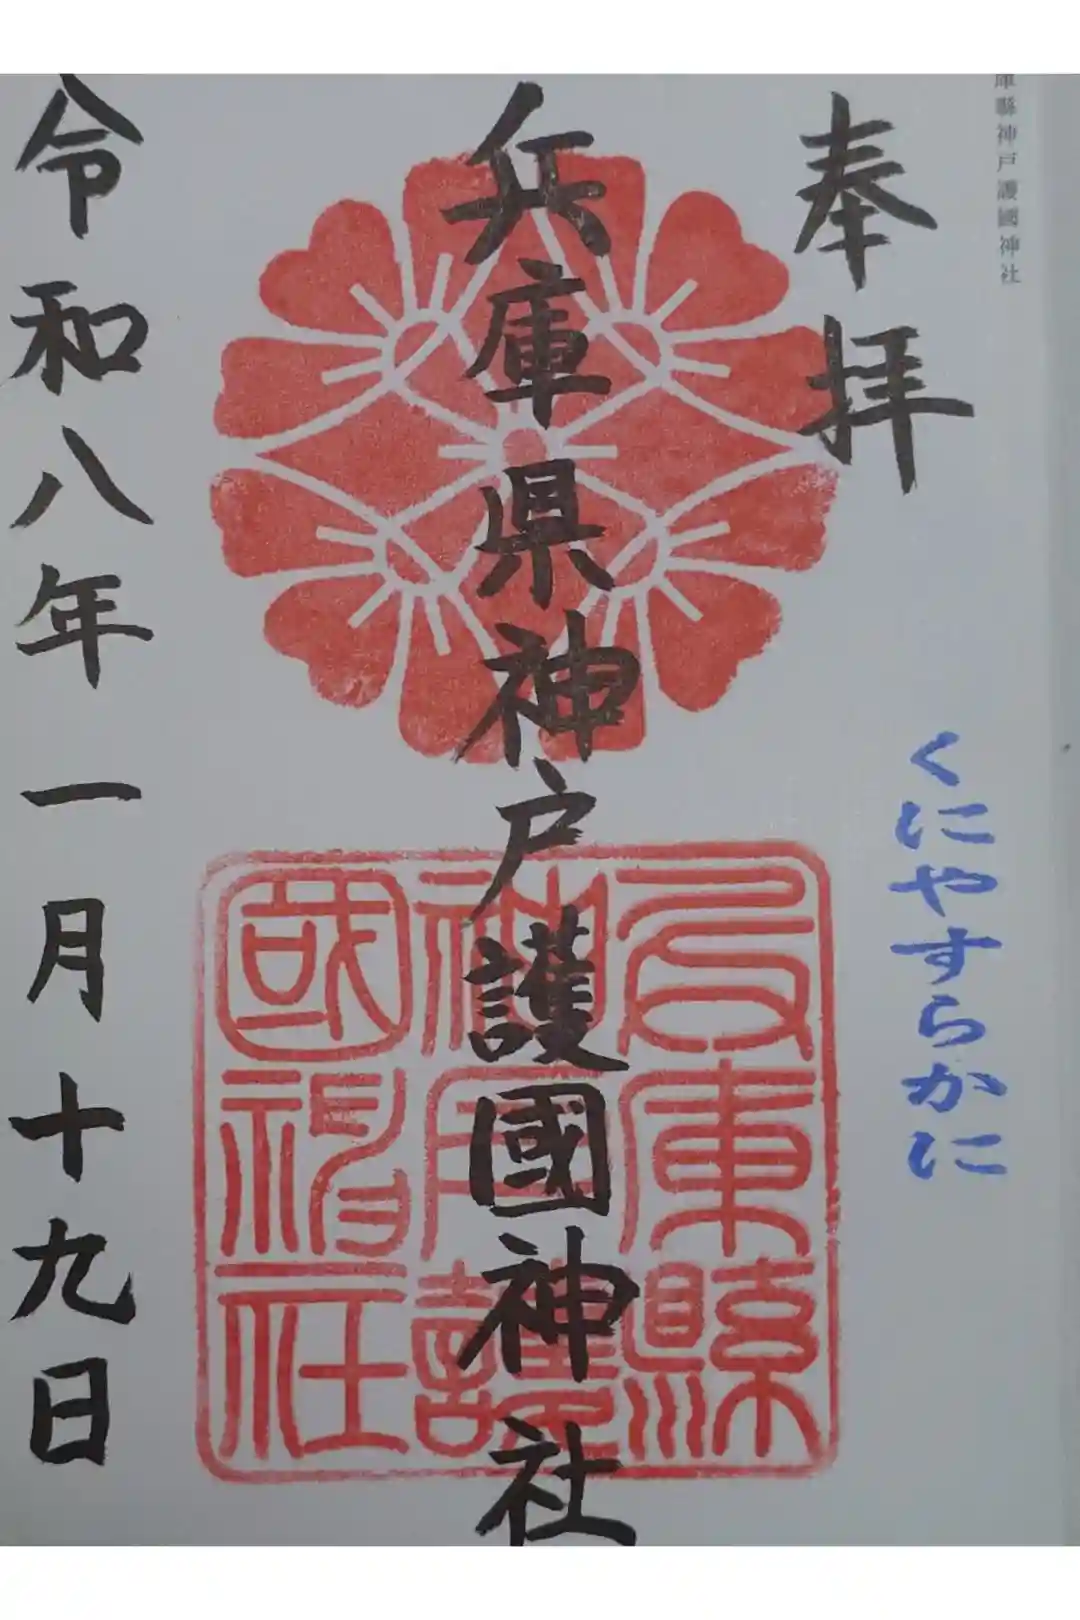 庫縣神戸護國神社
奉拝
くにやすらかに
兵庫県神戸護國神社
兵庫縣
神戸護
國神社
令和八年一月十九日